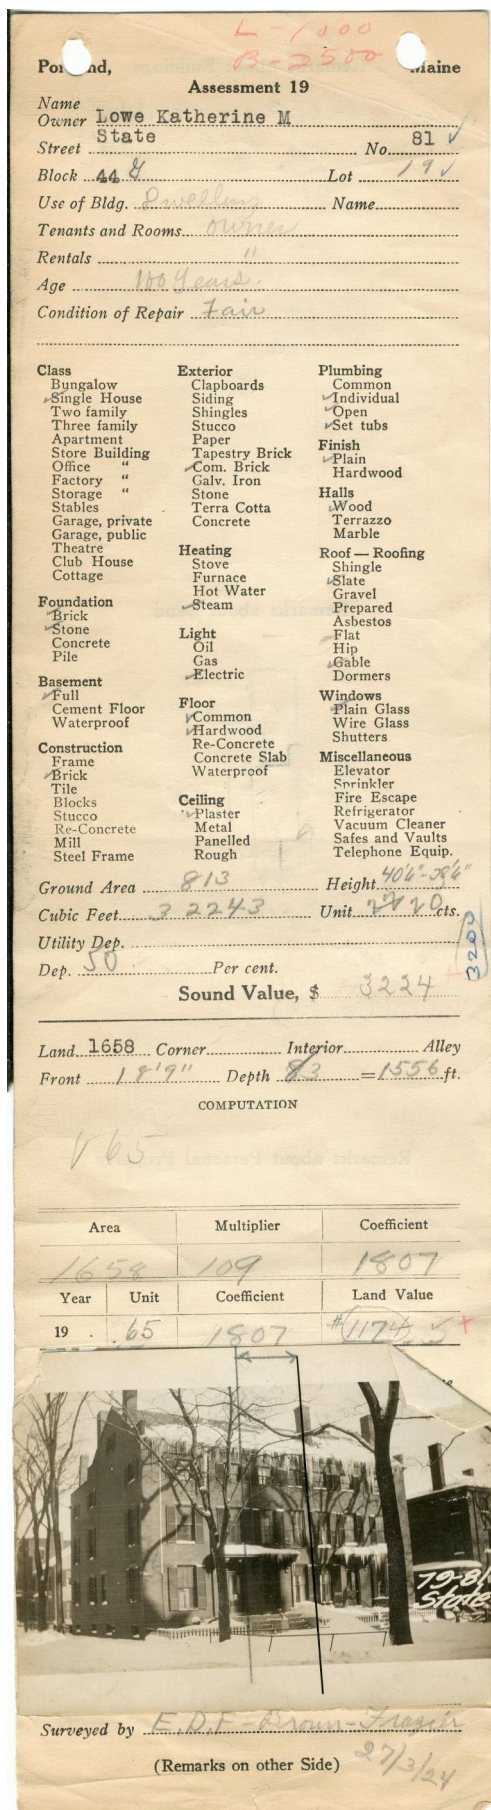 L-1000
B-2500
Portland, Maine
Assessment 19
Name
Owner Lowe Katherine M
Street State No. 81 ✓
Block 44 G Lot 19 ✓
Use of Bldg. Dwelling Name
Tenants and Rooms owner
Rentals "
Age 100 Years.
Condition of Repair Fair
Class
Bungalow
✓Single House
Two family
Three family
Apartment
Store Building
Office "
Factory "
Storage "
Stables
Garage, private
Garage, public
Theatre
Club House
Cottage
Foundation
✓Brick
✓Stone
Concrete
Pile
Basement
✓Full
Cement Floor
Waterproof
Construction
Frame
✓Brick
Tile
Blocks
Stucco
Re-Concrete
Mill
Steel Frame
Exterior
Clapboards
Siding
Shingles
Stucco
Paper
Tapestry Brick
✓Com. Brick
Galv. Iron
Stone
Terra Cotta
Concrete
Heating
Stove
Furnace
Hot Water
✓Steam
Light
Oil
Gas
✓Electric
Floor
✓Common
✓Hardwood
Re-Concrete
Concrete Slab
Waterproof
Ceiling
✓Plaster
Metal
Panelled
Rough
Plumbing
Common
✓Individual
✓Open
✓Set tubs
Finish
✓Plain
Hardwood
Halls
✓Wood
Terrazzo
Marble
Roof — Roofing
Shingle
✓Slate
Gravel
Prepared
Asbestos
✓Flat
Hip
✓Gable
Dormers
Windows
✓Plain Glass
Wire Glass
Shutters
Miscellaneous
Elevator
Sprinkler
Fire Escape
Refrigerator
Vacuum Cleaner
Safes and Vaults
Telephone Equip.
Ground Area 813 Height 40'6"-38'6"
Cubic Feet 32243 Unit 20 cts.
Utility Dep.
Dep. 50 Per cent.
3200
Sound Value, $ 3224
Land 1658 Corner Interior Alley
Front 18'9" Depth 83 = 1556 ft.
COMPUTATION
V 65
Area Multiplier Coefficient
1658 109 1807
Year Unit Coefficient Land Value
19 . .65 1807 #1174
79-81
State
Surveyed by E.D.F-Brown-Frazier
(Remarks on other Side) 27/3/24